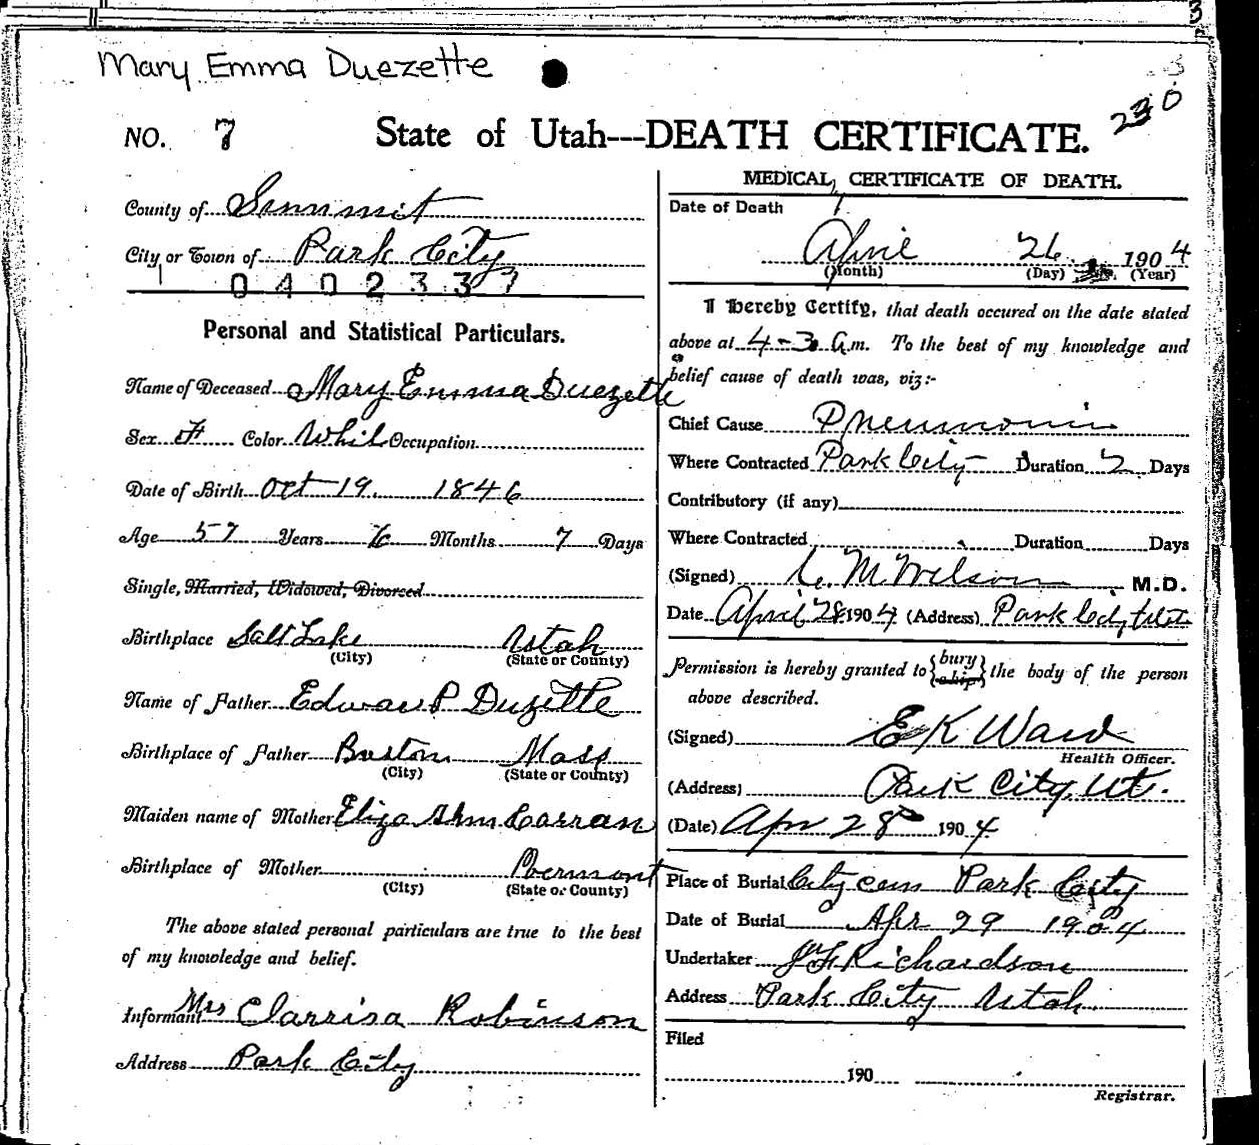 3
Mary Emma Duezette
230
NO. 7 State of Utah---DEATH CERTIFICATE.
County of Summit
City or Town of Park City
0402337
Personal and Statistical Particulars.
Name of Deceased Mary Emma Duezette
Sex F Color Whit Occupation
Date of Birth Oct 19 1846
Age 57 Years 6 Months 7 Days
Single, Married, Widowed, Divorced
Birthplace Salt Lake Utah
(City) (State or County)
Name of Father Edward P Duzette
Birthplace of Father Boston Mass
(City) (State or County)
Maiden name of Mother Eliza Ann Carran
Birthplace of Mother Vermont
(City) (State or County)
The above stated personal particulars are true to the best
of my knowledge and belief.
Informant Mrs Clarrisa Robinson
Address Park City
MEDICAL CERTIFICATE OF DEATH.
Date of Death
April 26 1904
(Month) (Day) (Year)
I hereby Certify, that death occured on the date stated
above at 4-30 a.m. To the best of my knowledge and
belief cause of death was, viz:-
Chief Cause Pneumonia
Where Contracted Park City Duration 2 Days
Contributory (if any)
Where Contracted Duration Days
(Signed) C. M. Wilson M.D.
Date April 28 1904 (Address) Park City Utah
Permission is hereby granted to {bury
ship} the body of the person
above described.
(Signed) E K Ward
Health Officer.
(Address) Park City, Ut.
(Date) Apr 28 1904
Place of Burial City cem Park City
Date of Burial Apr 29 1904
Undertaker Richardson
Address Park City Utah
Filed
190
Registrar.